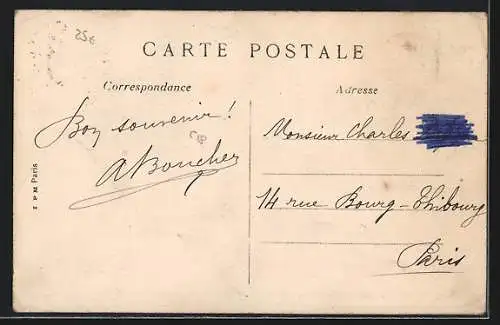 25€
CARTE POSTALE
Correspondance
Adresse
Bon souvenir!
ABoucher
Monsieur Charles
14 rue Bourg-Thibourg
Paris
P M Paris